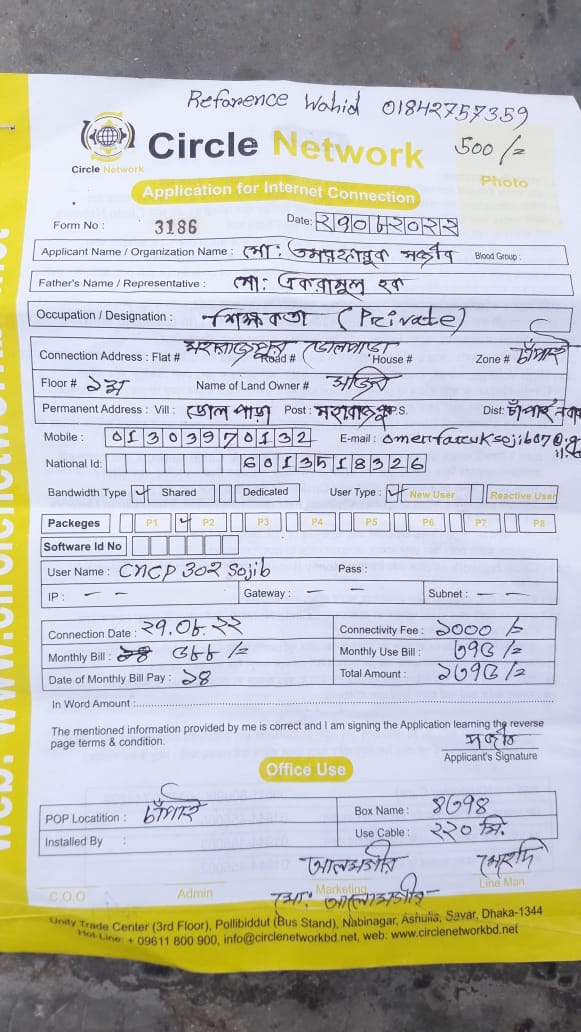 Reference Wahid 01842757359
Circle Network 500/=
Circle Network
Photo
Application for Internet Connection
Form No : 3186 Date: ২৯০৮২০২২
Applicant Name / Organization Name : মো: ওমর ফারুক সজীব Blood Group :
Father's Name / Representative : মো: একরামুল হক
Occupation / Designation : (Private)
Connection Address : Flat # মহারাজপুর Road # ডোলপাড়া House # Zone #
Floor # ১ম Name of Land Owner #
Permanent Address : Vill : ডোল পাড়া Post : মহারাজপুর P.S. Dist:
Mobile : 01303970132 E-mail : omerfaruksojib07@g
National Id: 6013518326
Bandwidth Type Shared Dedicated User Type : New User Reactive User
Packeges P1 P2 P3 P4 P5 P6 P7 P8
Software Id No
User Name : CNCP302 Sojib Pass :
IP : - - Gateway : - - Subnet : - -
Connection Date : ২৯.০৮.২২ Connectivity Fee : ১০০০/=
Monthly Bill : /= Monthly Use Bill : /=
Date of Monthly Bill Pay : ১৪ Total Amount : /=
In Word Amount :
The mentioned information provided by me is correct and I am signing the Application learning the reverse
page terms & condition.
সজীব
Applicant's Signature
Office Use
POP Locatition : Box Name :
Installed By : Use Cable : ২২০ মি.
আলমগীর
C.O.O Admin Marketing Line Man
মো: আলমগীর
Unity Trade Center (3rd Floor), Pollibiddut (Bus Stand), Nabinagar, Ashulia, Savar, Dhaka-1344
Hot-Line: + 09611 800 900, info@circlenetworkbd.net, web: www.circlenetworkbd.net